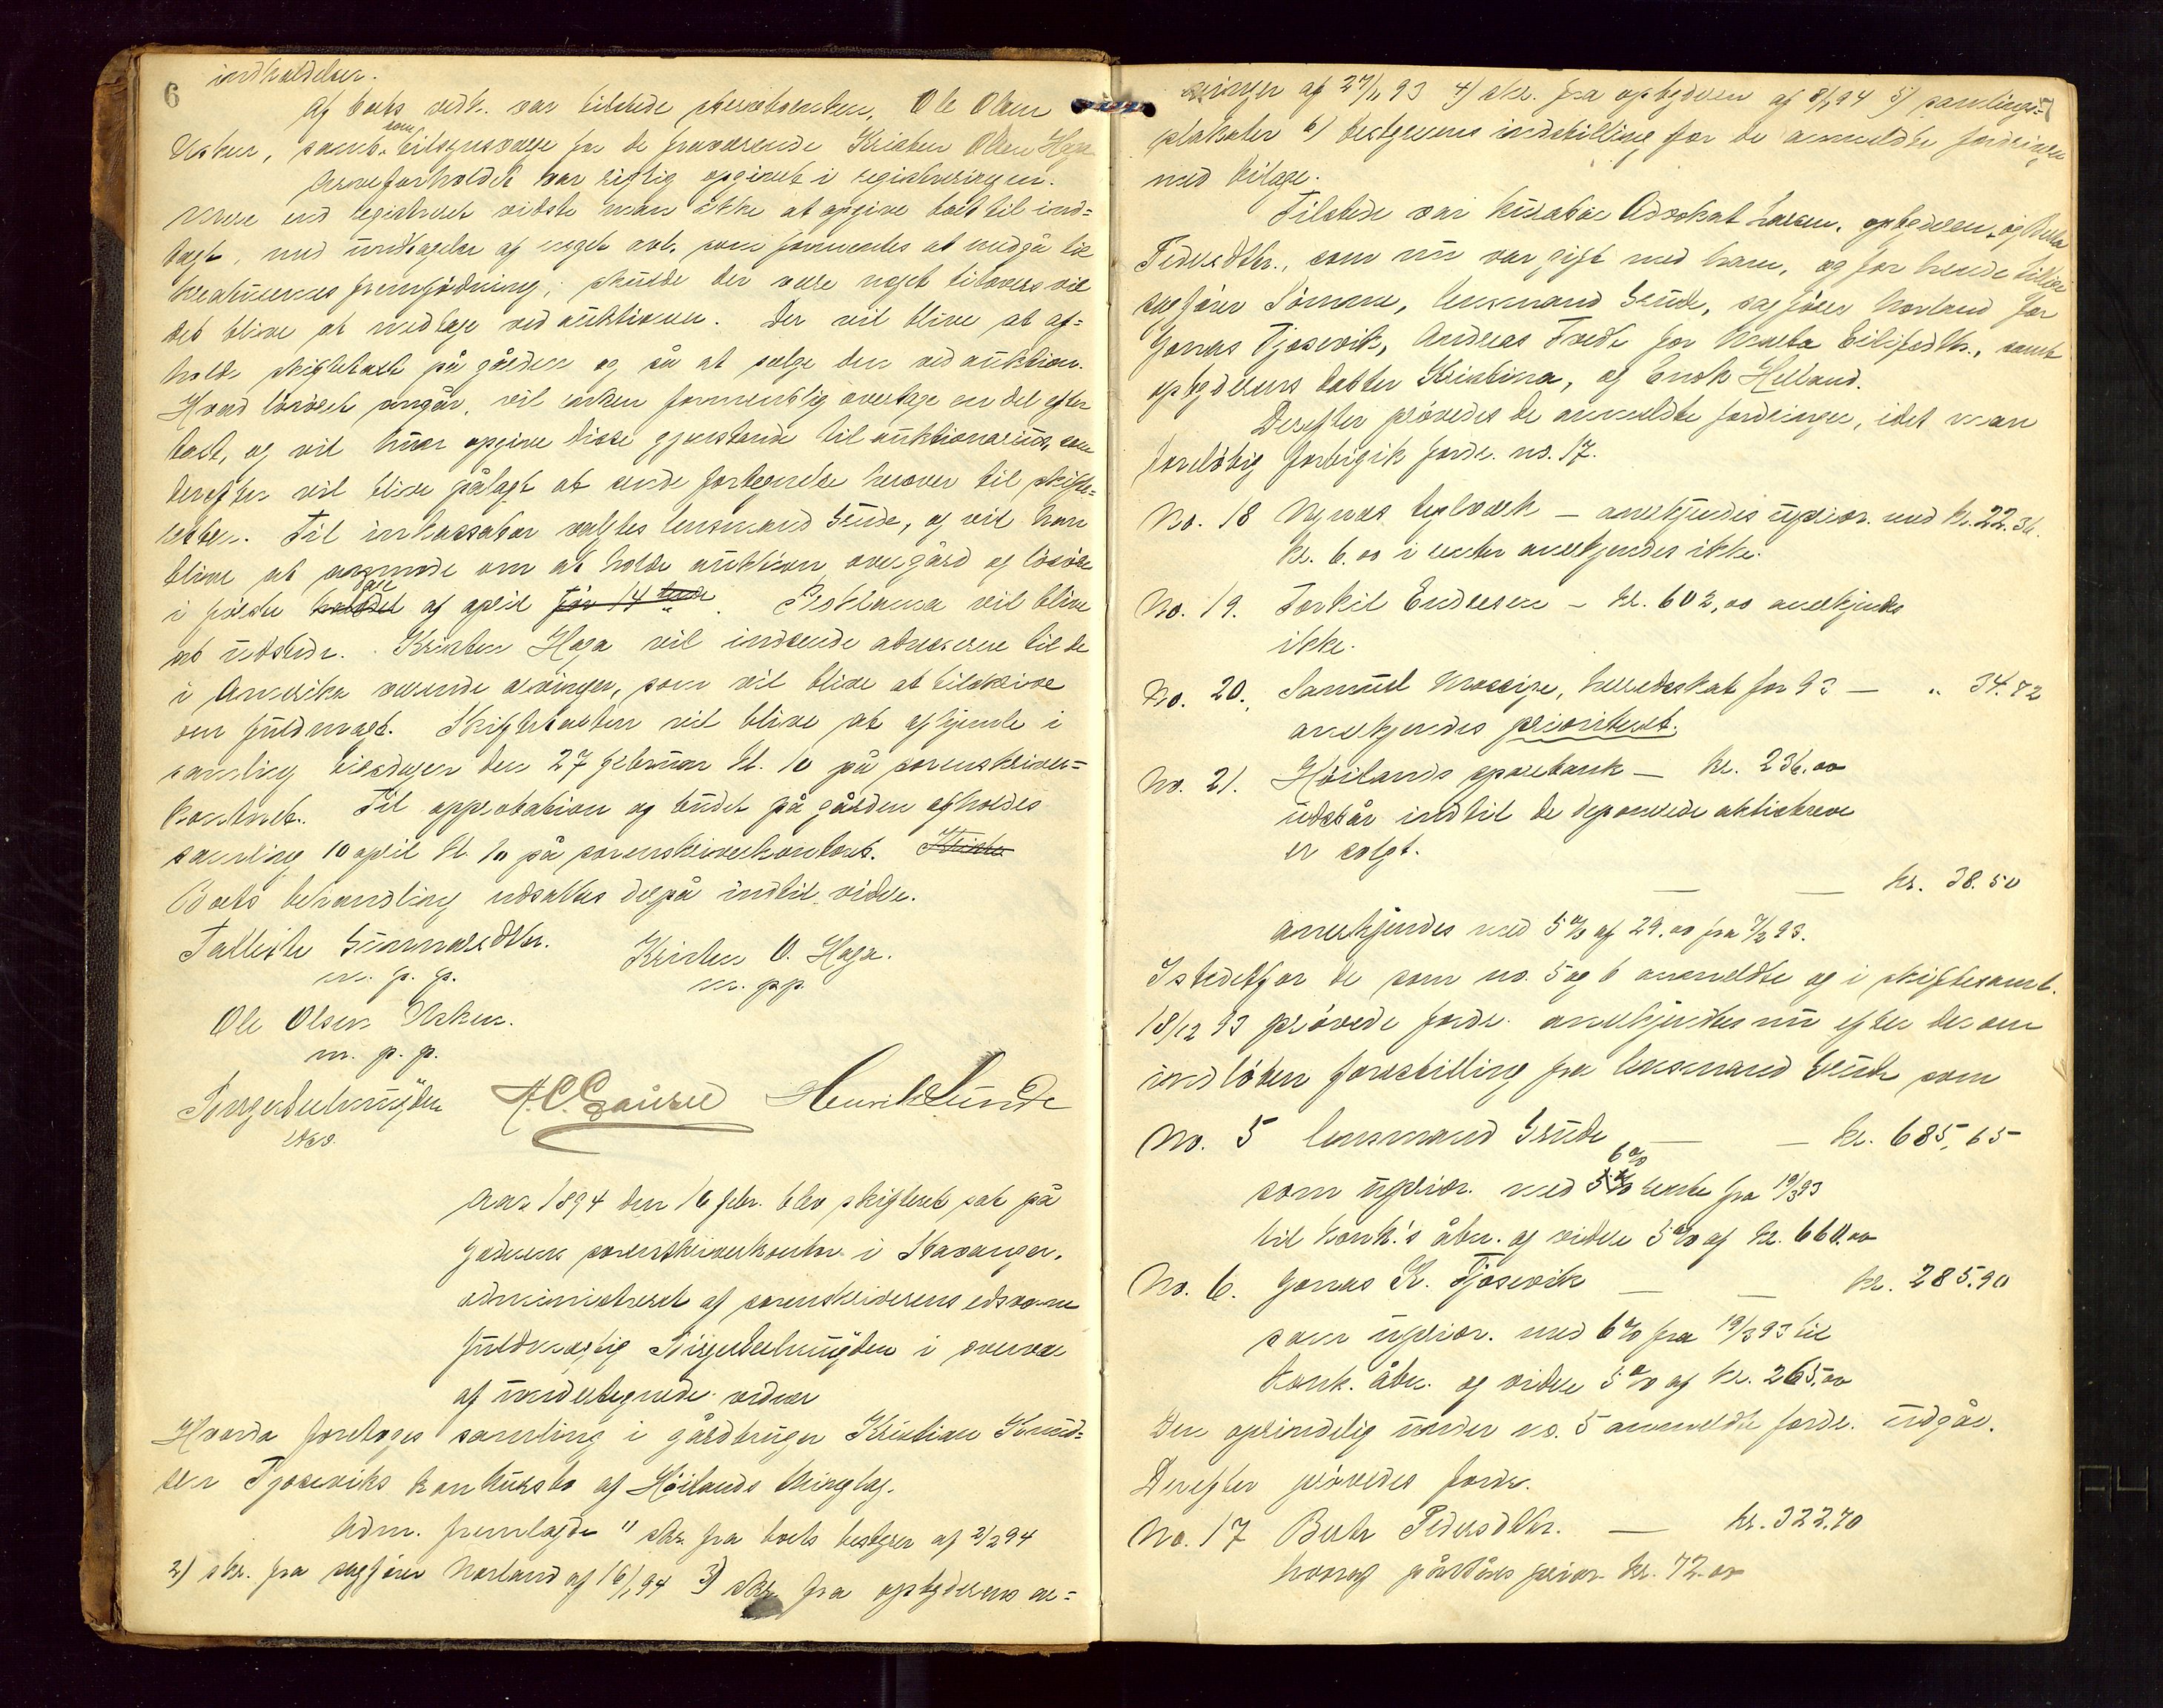 6
indkaldelser.
Af boets vedk. var tilstede sterboenken, Ole Olsen
Asken, samt som tilsynsværge for de fraværende Kristen Olsen Haga
Arveforholdet var rigtig opgivet i registreringen.
Mere end registreret vidste man ikke at opgive boet til ind=
tægt, med undtagelse af noget avl. som formentes at medgå til
kreaturernes fremfødning; skulde der være noget tilovers vil
det blive at medtage ved auktionen. Der vil blive at af=
holde skiftetakst på gården og så at sælge den ved auktion.
Hvad løsøret angår, vil enken formentlig overtage en del efter
takst, og vil hun opgive disse gjenstande til auktionarius, som
derefter vil blive pålagt at sende fortegnelse herover til skifte=
retten. Til inkassator valgtes lensmand Grude, og vil han
blive at anmode om at holde auktion over gård og løsøre
i første halvdel af april før 14 ende. Proklama vil blive
at udstede. Kristen Haga vil indsende adresserne til de
i Amerika værende arvinger, som vil blive at tilskrive
om fuldmagt. Skiftetaksten vil blive at afhjemle i
samling tirsdagen den 27 februar kl. 10 på sorenskriver=
kontoret. Til approbation og budet på gården afholdes
samling 10 april kl. 10 på sorenskriverkontoret.
Boets behandling udsattes derpå indtil videre.
Tallette Gunnarsdtr. Kristen O. Haga.
m. p. p. m. p. p.
Ole Olsen Asken.
m. p. p.
H. C. Gausel Henrik Sunde
Aar 1894 den 16 febr. blev skifteret sat på
Jæderens sorenskriverkontor i Stavanger,
administreret af sorenskriverens edsvorne
fuldmægtig i overvær
af undertegnede vidner
Hvorda foretoges samling i gårdbruger Kristian Knud=
sen Tjosevíks konkursbo af Høilands thinglag.
Adm. fremlagde 1) skr. fra boets bestyrer af 2/2 94
2) skr. fra sagfører Norland af 16/1 94 3) skr. fra opbyderens ar=
7
vinger af 27/11 93 4) skr. fra opbyderen af 8/1 94 5) samlings=
plakater 6) bestyrerens indstilling for de anmeldte fordringer
med bilage.
Tilstede var kurator Advokat Larsen, opbyderen og Berta
Pedersdtr., som nu var gift med ham, og for hende tillige
sagfører Sømme, lensmand Grude, sagfører Norland for
Jonas Tjosevik, Andreas Frede for Marta Eilifsdtr., samt
opbyderens datter Kristina, og Enok Helland.
Derefter prøvedes de anmeldte fordringer, idet man
foreløbig forbigik fordr. no. 17.
No. 18 teglværk — anerkjendes uprior. med kr. 22.36.
kr. 6.00 i renter anerkjendes ikke.
No. 19. Torkil Endresen — kr. 602,00 anerkjendes
ikke.
No. 20. Samuel Mossige, herredsskat for 93 — " 34.72
anerkjendes prioriteret.
No. 21. Høilands sparebank — kr. 236.00
udstår indtil de deponerede aktiebreve
er solgt.
— — kr. 38.50
anerkjendes med 5 % af 29.00 fra 7/2 93.
Istedetfor de som no. 5 og 6 anmeldte og i skiftesaml.
18/12 93 prøvede fordr. anerkjendtes nu efter derom
indløben forestilling fra lensmand Grude som
No. 5 lensmand Grude — — kr. 685,65
som uprior. med 6 % rente fra 19/3 93
til konk's åbn. og videre 5 % af kr. 660.00
No. 6. Jonas K. Tjosevik — — kr. 285.90
som uprior. med 6 % fra 19/3 93 til
konk. åbn. og videre 5 % af kr. 265.00
Den oprindelig under no. 5 anmeldte fordr. udgår.
Derefter prøvedes fordr.
No. 17 Berta Pedersdtr. — kr. 322.70
hvorag påstået prior. kr. 72.00